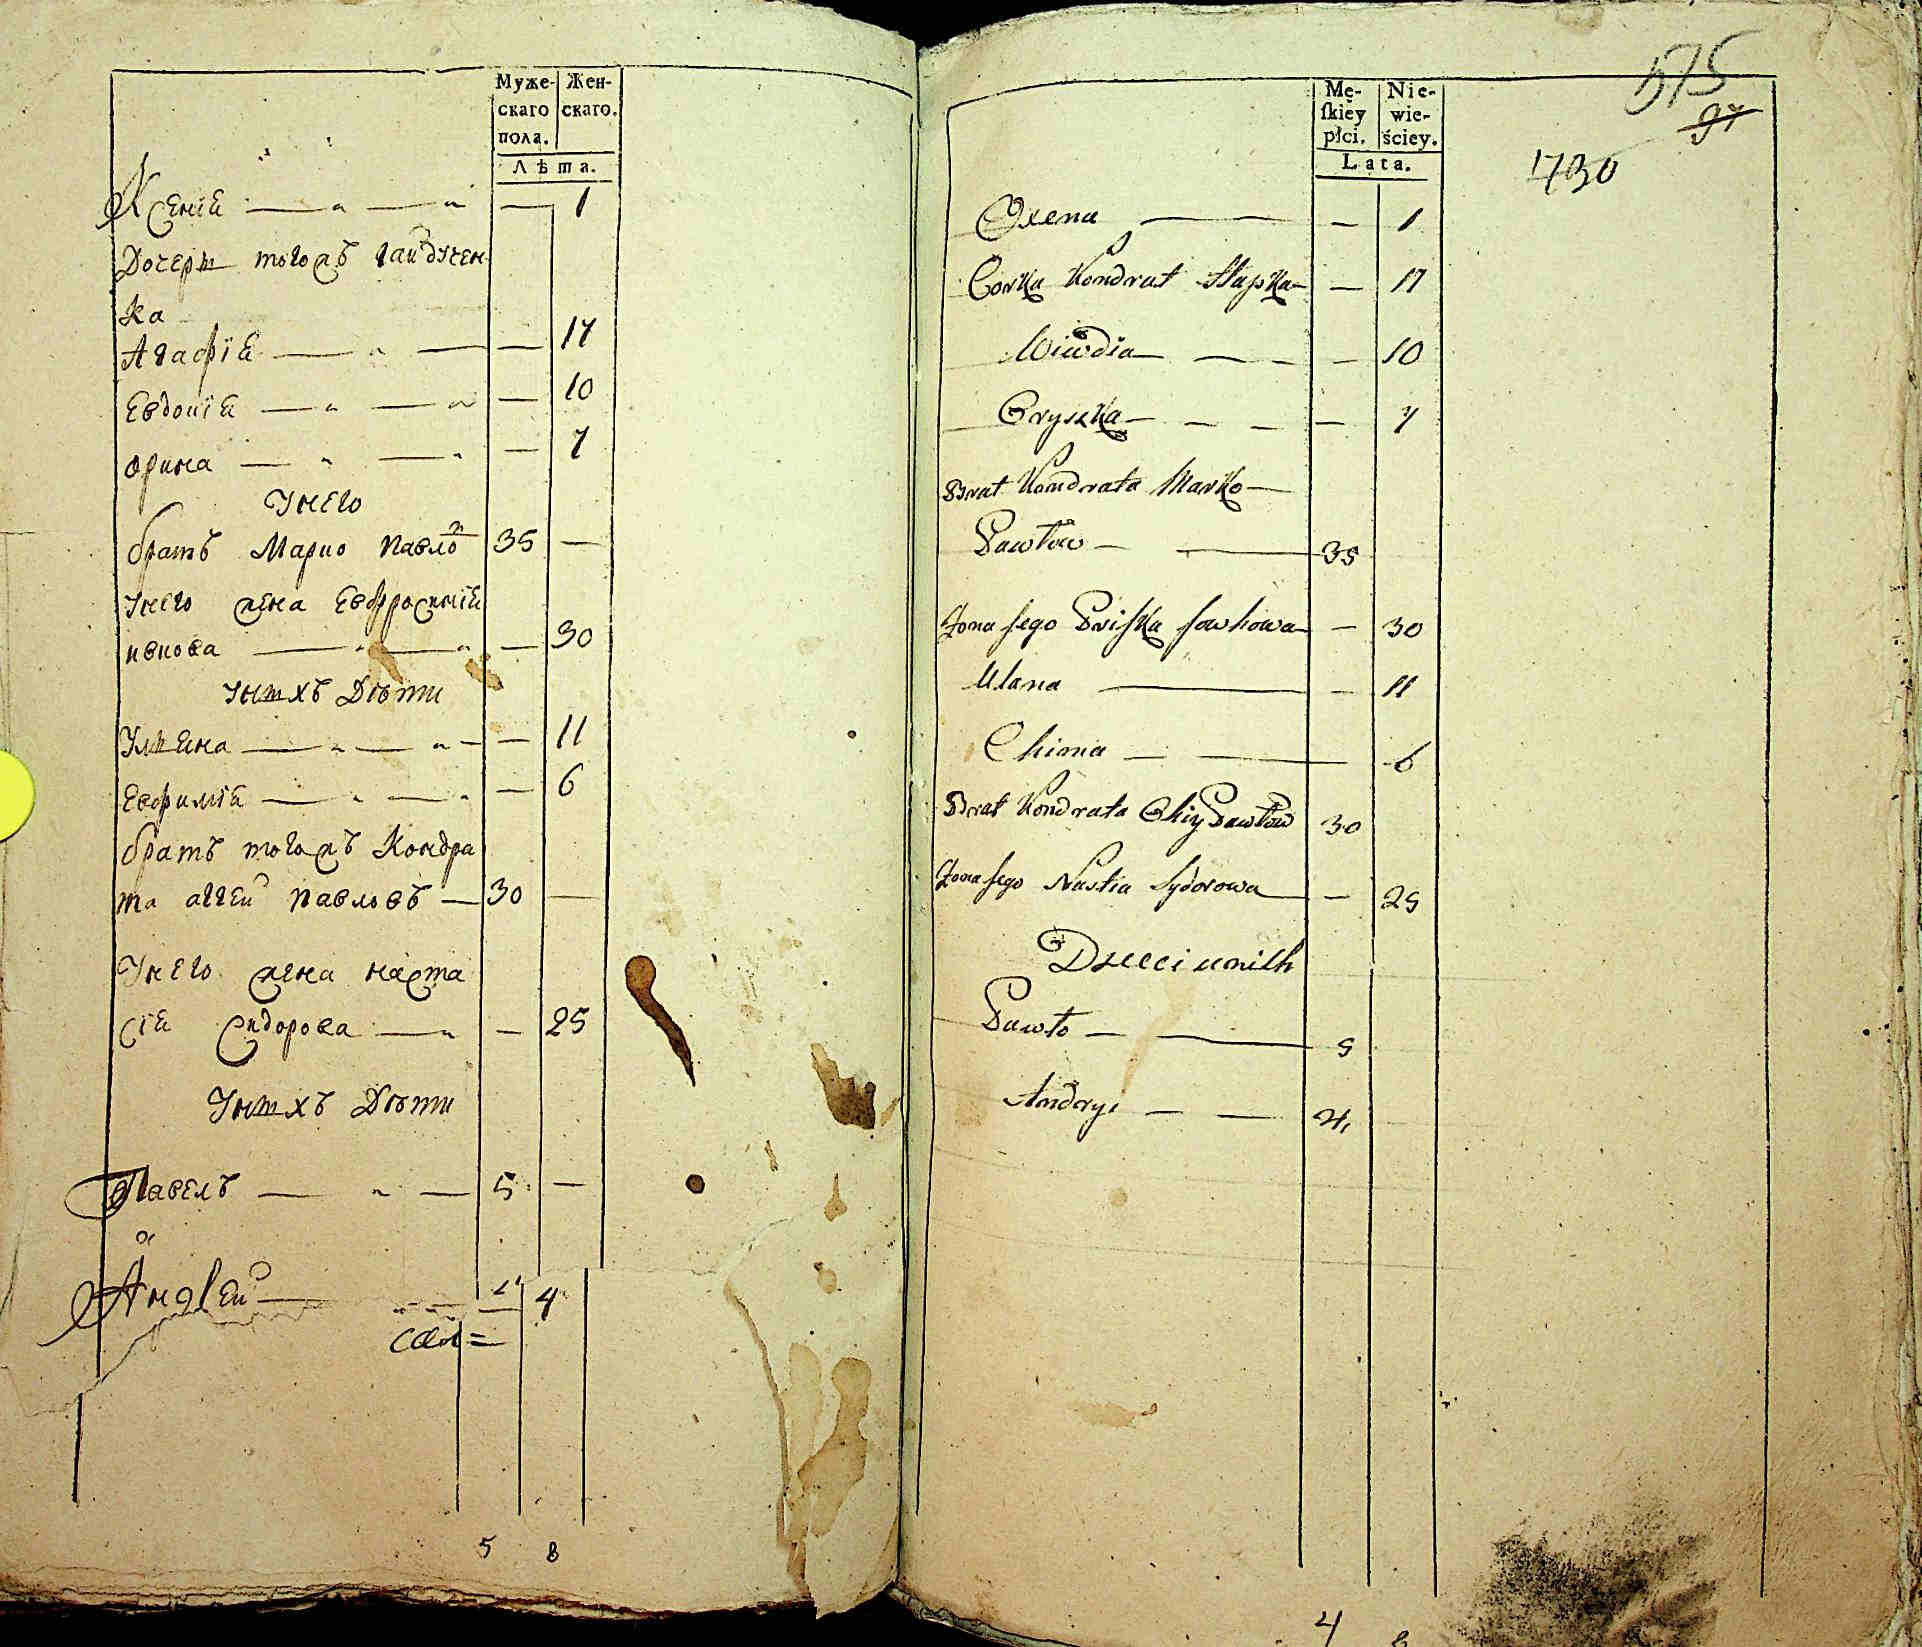 Муже-
скаго
пола.
Жен-
скаго.
Лѣта.
Ксения 1
Дочери тогожъ гайдучен
ка
Агафія 17
Евдокія 10
Орина 7
Унего
братъ Марко Павло 35
Унего жена Евфросинія
30
Унихъ Дѣти
Ульяна 11
Евфимія 6
братъ тогожъ Кондра
та Павловъ 30
Унего жена Наста
сія Сидорова 25
Унихъ Дѣти
Павелъ 5
Андрей 4
5 8
Mę-
ſkiey
płci.
Nie-
wie-
ściey.
Lata.
575
97
1730
Oxena 1
Corka Kondrat Hapka 17
Wiwdia 10
Oryszka 7
Brat Kondrata Marko
Pawłow 35
Żona jego Priſka 30
Ulana 11
Chima 6
Brat Kondrata Pawłow 30
Żona jego Nastia Sydorowa 25
Dzieci unich
Pawło 5
Andryi 4
4 8